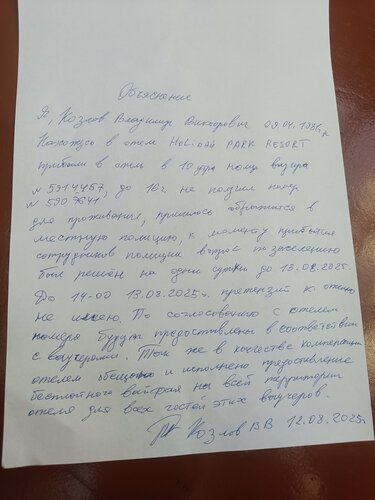 Объяснение
Я, Козлов Владимир Викторович 09.04.1986г.р
Нахожусь в отеле HOLIDAY PARK RESORT
прибыли в отель в 10 утра наши ваучера
№ 5914457, до 16ч не получили номер
№ 5907641
для проживания, пришлось обратится в
местную полицию, к моменту прибытия
сотрудников полиции вопрос по заселению
был решён на одни сутки до 13.08.2025.
До 14-00 13.08.2025г. претензий к отелю
не имею. По согласованию с отелем
номера будут предоставлены в соответствии
с ваучерами. Так же в качестве компенсации
отелем обещано и исполнено предоставление
бесплатного вайфая на всей территории
отеля для всех гостей этих ваучеров.
Козлов ВВ 12.08.2025г